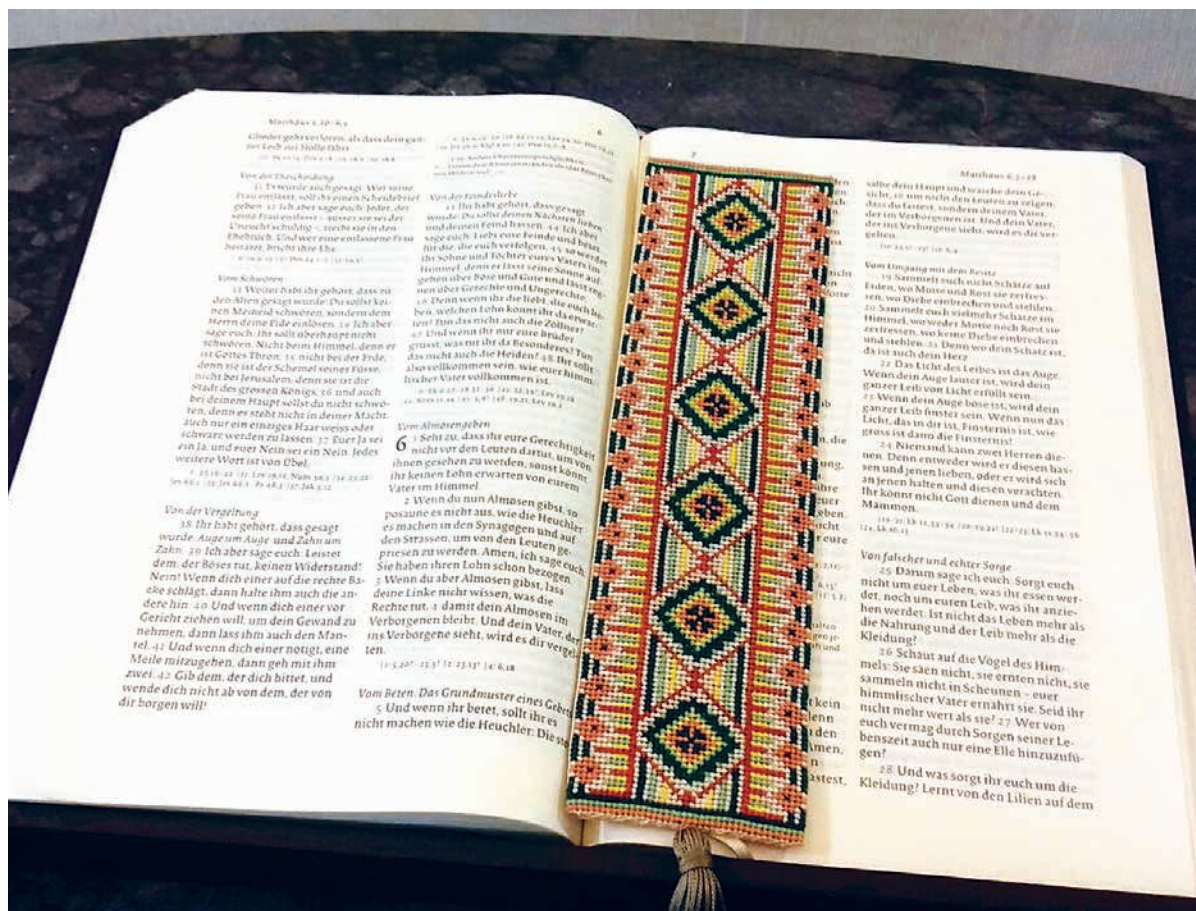 Glieder geht verloren, als dass dein gan-
zer Leib zur Hölle fährt.
Von der Ehescheidung
31 Es wurde auch gesagt: Wer seine
Frau entlässt, soll ihr einen Scheidebrief
geben. 32 Ich aber sage euch: Jeder, der
seine Frau entlässt – ausser sie sei der
Unzucht schuldig –, treibt sie in den
Ehebruch. Und wer eine entlassene Frau
heiratet, bricht ihre Ehe.
Vom Schwören
33 Weiter habt ihr gehört, dass zu
den Alten gesagt wurde: Du sollst kei-
nen Meineid schwören, sondern dem
Herrn deine Eide einlösen. 34 Ich aber
sage euch: Ihr sollt überhaupt nicht
schwören. Nicht beim Himmel, denn er
ist Gottes Thron, 35 nicht bei der Erde,
denn sie ist der Schemel seiner Füsse,
nicht bei Jerusalem, denn sie ist die
Stadt des grossen Königs, 36 und auch
bei deinem Haupt sollst du nicht schwö-
ren, denn es steht nicht in deiner Macht,
auch nur ein einziges Haar weiss oder
schwarz werden zu lassen. 37 Euer Ja sei
ein Ja, und euer Nein sei ein Nein. Jedes
weitere Wort ist von Übel.
Von der Vergeltung
38 Ihr habt gehört, dass gesagt
wurde: Auge um Auge und Zahn um
Zahn. 39 Ich aber sage euch: Leistet
dem, der Böses tut, keinen Widerstand!
Nein! Wenn dich einer auf die rechte Ba-
cke schlägt, dann halte ihm auch die an-
dere hin. 40 Und wenn dich einer vor
Gericht ziehen will, um dein Gewand zu
nehmen, dann lass ihm auch den Man-
tel. 41 Und wenn dich einer nötigt, eine
Meile mitzugehen, dann geh mit ihm
zwei. 42 Gib dem, der dich bittet, und
wende dich nicht ab von dem, der von
dir borgen will!
6
Von der Feindesliebe
43 Ihr habt gehört, dass gesagt
wurde: Du sollst deinen Nächsten lieben
und deinen Feind hassen. 44 Ich aber
sage euch: Liebt eure Feinde und betet
für die, die euch verfolgen, 45 so werdet
ihr Söhne und Töchter eures Vaters im
Himmel; denn er lässt seine Sonne auf-
gehen über Böse und Gute und lässt reg-
nen über Gerechte und Ungerechte.
46 Denn wenn ihr die liebt, die euch lie-
ben, welchen Lohn könnt ihr da erwar-
ten? Tun das nicht auch die Zöllner?
47 Und wenn ihr nur eure Brüder
grüsst, was tut ihr da Besonderes? Tun
das nicht auch die Heiden? 48 Ihr sollt
also vollkommen sein, wie euer himm-
lischer Vater vollkommen ist.
Vom Almosengeben
6 1 Seht zu, dass ihr eure Gerechtigkeit
nicht vor den Leuten dartut, um von
ihnen gesehen zu werden, sonst könnt
ihr keinen Lohn erwarten von eurem
Vater im Himmel.
2 Wenn du nun Almosen gibst, so
posaune es nicht aus, wie die Heuchler
es machen in den Synagogen und auf
den Strassen, um von den Leuten ge-
priesen zu werden. Amen, ich sage euch:
Sie haben ihren Lohn schon bezogen.
3 Wenn du aber Almosen gibst, lass
deine Linke nicht wissen, was die
Rechte tut, 4 damit dein Almosen im
Verborgenen bleibt. Und dein Vater, der
ins Verborgene sieht, wird es dir vergel-
ten.
Vom Beten. Das Grundmuster eines Gebets
5 Und wenn ihr betet, sollt ihr es
nicht machen wie die Heuchler: Die
7
Matthäus 6,5–28
salbe dein Haupt und wasche dein Ge-
sicht, 18 um nicht den Leuten zu zeigen,
dass du fastest, sondern deinem Vater,
der im Verborgenen ist. Und dein Vater,
der ins Verborgene sieht, wird es dir ver-
gelten.
Vom Umgang mit dem Besitz
19 Sammelt euch nicht Schätze auf
Erden, wo Motte und Rost sie zerfres-
sen, wo Diebe einbrechen und stehlen.
20 Sammelt euch vielmehr Schätze im
Himmel, wo weder Motte noch Rost sie
zerfressen, wo keine Diebe einbrechen
und stehlen. 21 Denn wo dein Schatz ist,
da ist auch dein Herz.
22 Das Licht des Leibes ist das Auge.
Wenn dein Auge lauter ist, wird dein
ganzer Leib von Licht erfüllt sein.
23 Wenn dein Auge böse ist, wird dein
ganzer Leib finster sein. Wenn nun das
Licht, das in dir ist, Finsternis ist, wie
gross ist dann die Finsternis!
24 Niemand kann zwei Herren die-
nen. Denn entweder wird er diesen has-
sen und jenen lieben, oder er wird sich
an jenen halten und diesen verachten.
Ihr könnt nicht Gott dienen und dem
Mammon.
Von falscher und echter Sorge
25 Darum sage ich euch: Sorgt euch
nicht um euer Leben, was ihr essen wer-
det, noch um euren Leib, was ihr anzie-
hen werdet. Ist nicht das Leben mehr als
die Nahrung und der Leib mehr als die
Kleidung?
26 Schaut auf die Vögel des Him-
mels: Sie säen nicht, sie ernten nicht, sie
sammeln nicht in Scheunen – euer
himmlischer Vater ernährt sie. Seid ihr
nicht mehr wert als sie? 27 Wer von
euch vermag durch Sorgen seiner Le-
benszeit auch nur eine Elle hinzuzufü-
gen?
28 Und was sorgt ihr euch um die
Kleidung? Lernt von den Lilien auf dem